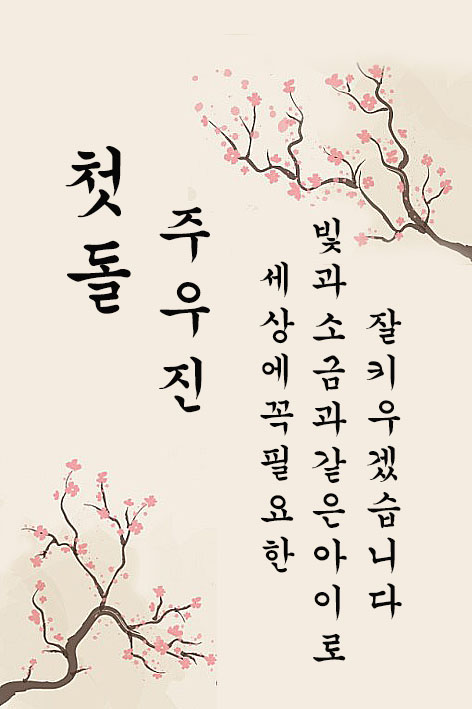 첫돌
주우진
세상에꼭필요한
빛과소금과같은아이로
잘키우겠습니다